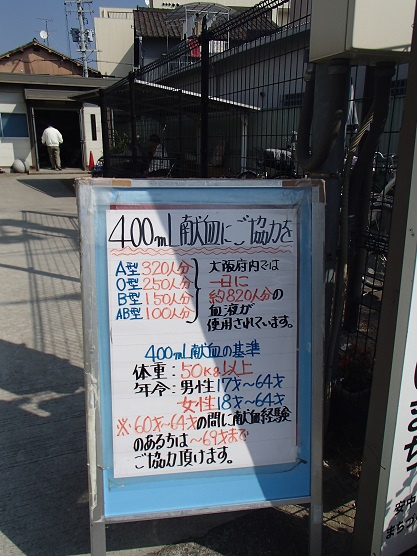 400mL献血にご協力を
A型 320人分
O型 250人分
B型 150人分
AB型 100人分
大阪府内では
一日に
約820人分の
血液が
使用されています。
400mL献血の基準
体重:50kg以上
年令:男性17才〜64才
女性18才〜64才
※60才〜64才の間に献血経験
のある方は〜69才まで
ご協力頂けます。
安中
まち